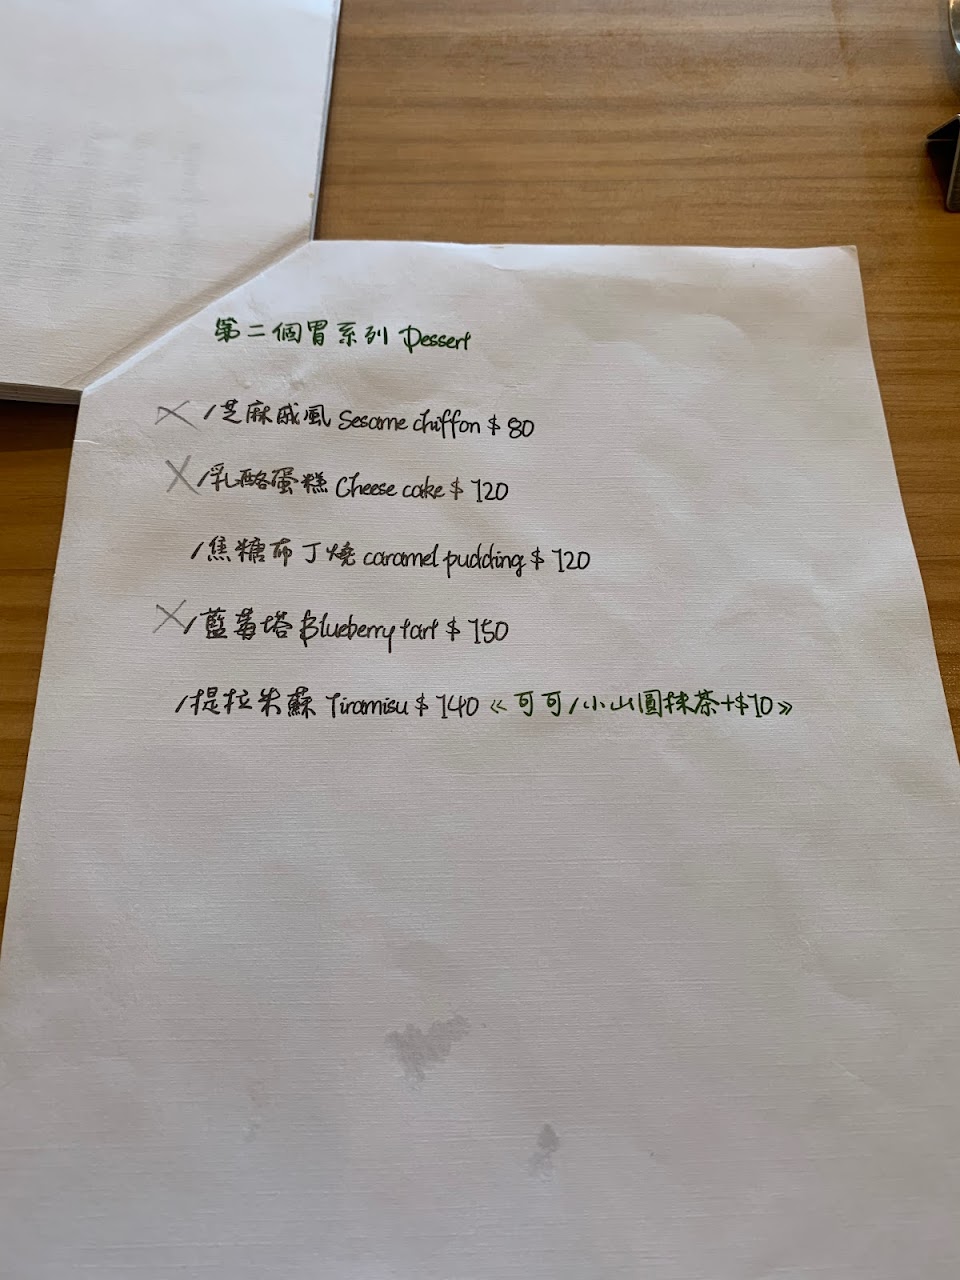 第二個胃系列 Dessert
/芝麻戚風 Sesame chiffon $ 80
/乳酪蛋糕 Cheese cake $ 120
/焦糖布丁燒 caramel pudding $ 120
/藍莓塔 Blueberry tart $ 150
/提拉米蘇 Tiramisu $ 140 《可可/小山圓抹茶+$10》